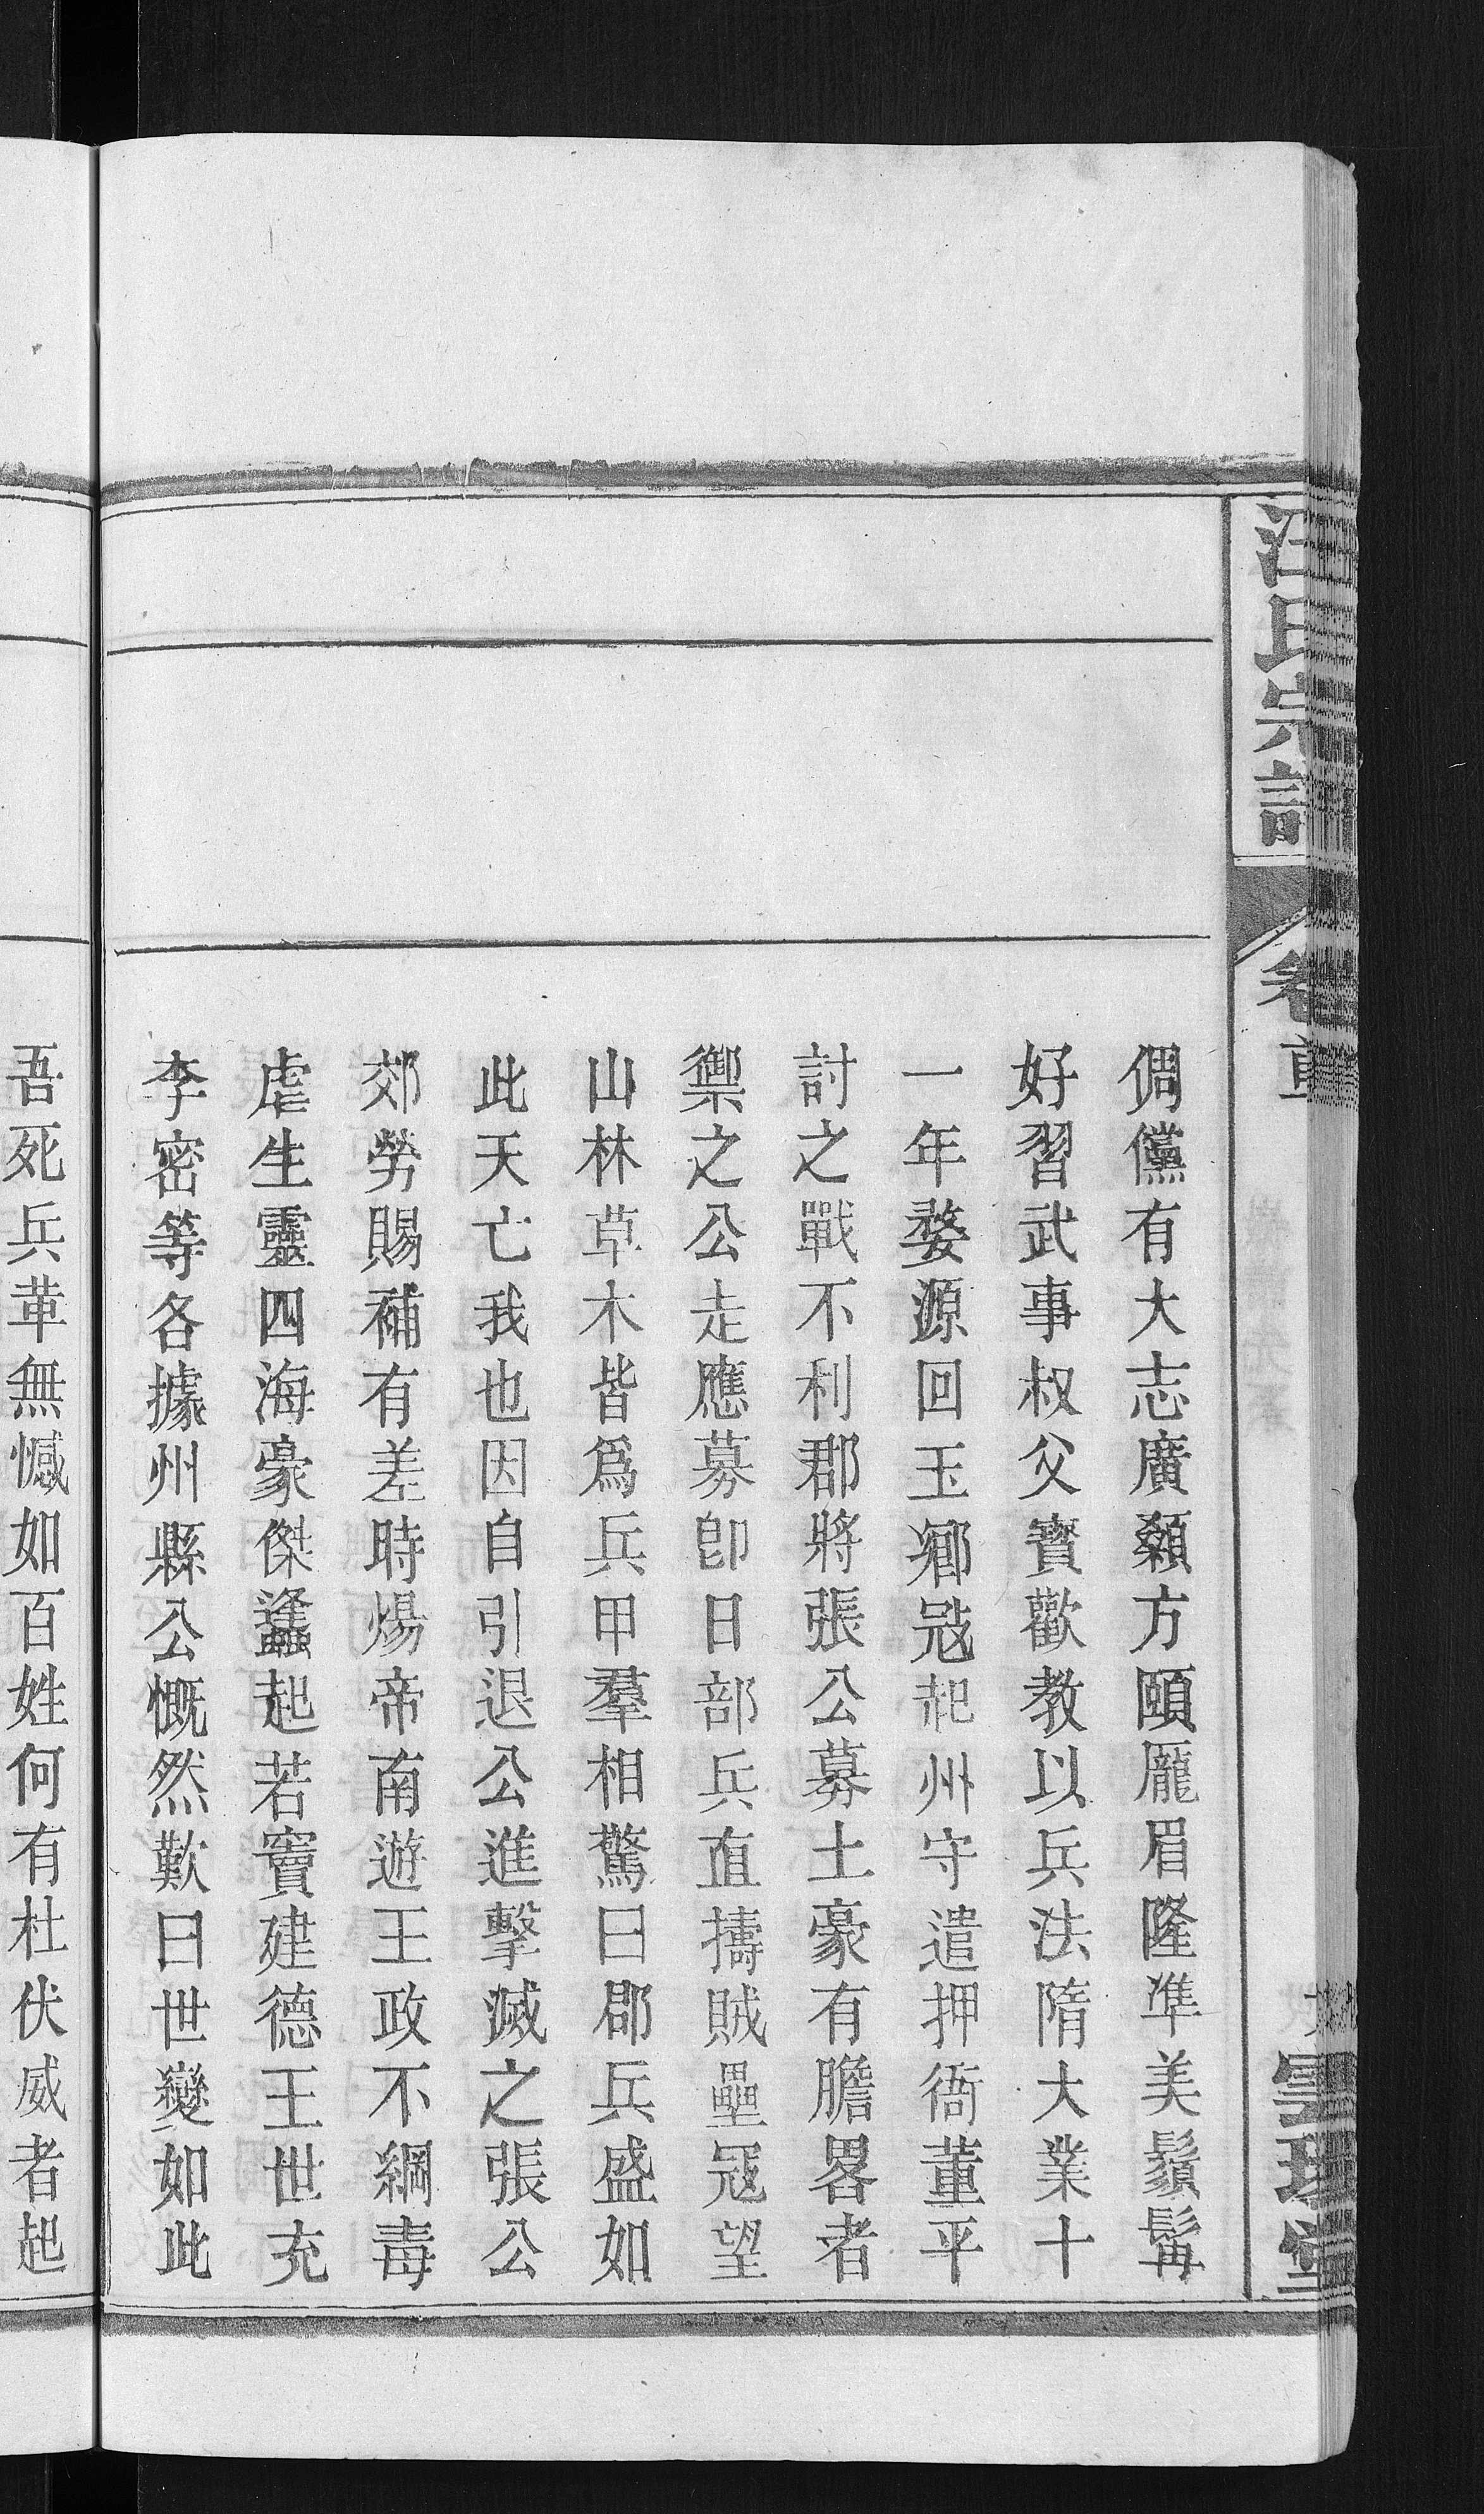 汪氏宗譜
卷首
倜儻有大志廣顙方頤龐眉隆凖美鬚髯
好習武事叔父寳歡教以兵法隋大業十
一年婺源回玉鄉冦起州守遣押衙董平
討之戰不利郡將張公募土豪有膽畧者
禦之公走應募卽日部兵直擣賊壘冦望
山林草木皆爲兵甲羣相驚曰郡兵盛如
此天亡我也因自引退公進擊滅之張公
郊勞賜補有差時煬帝南遊王政不綱毒
虐生靈四海豪傑蠭起若竇建德王世充
李密等各據州縣公慨然歎曰世變如此
吾死兵革無憾如百姓何有杜伏威者起